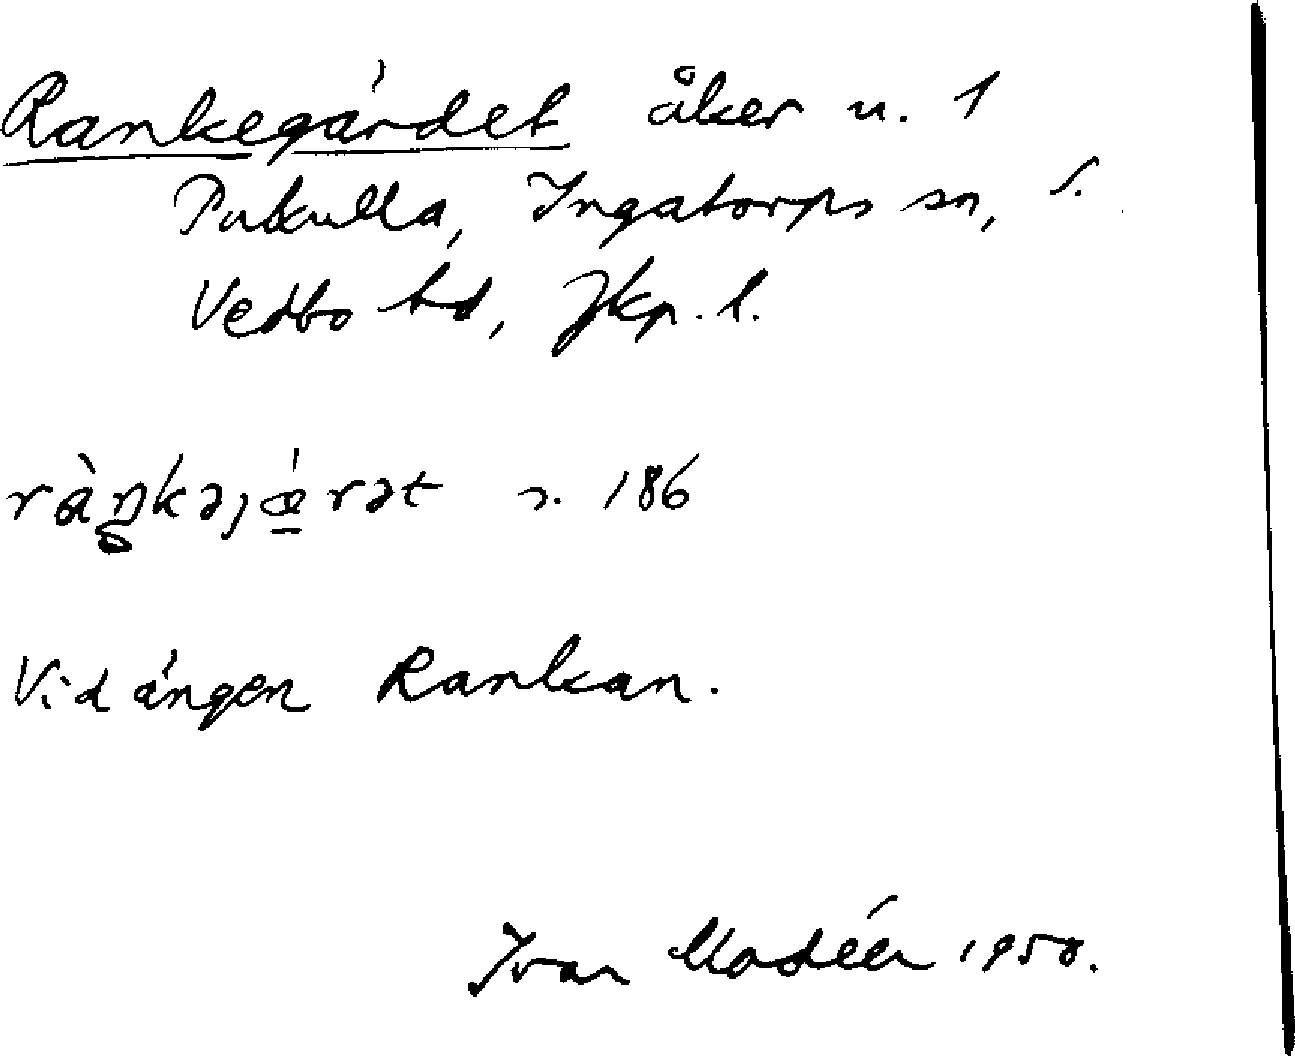 Rankegärdet åker u. 1
Pukulla, Ingatorps sn, S.
Vedbo hd, Jkp. l.
ràŋkəjǽrət s. 186
Vid ängen Rankan.
Ivar Modéer 1950.